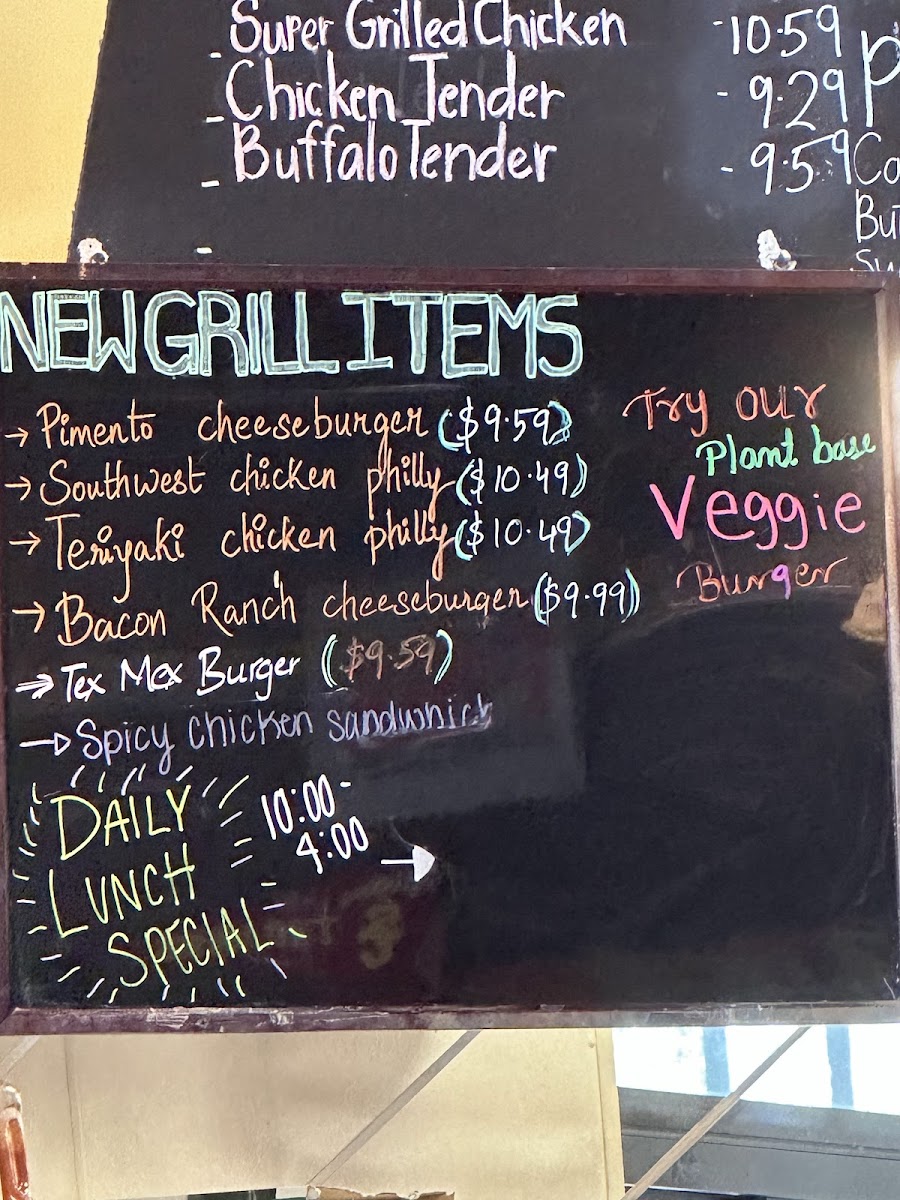 - Super Grilled Chicken - 10.59
- Chicken Tender - 9.29
- Buffalo Tender - 9.59
-
NEW GRILL ITEMS
→ Pimento cheeseburger ($9.59)
→ Southwest chicken philly ($10.49)
→ Teriyaki chicken philly ($10.49)
→ Bacon Ranch cheeseburger ($9.99)
→ Tex Mex Burger ($9.59)
→ Spicy chicken sandwhich
Try our
Plant base
Veggie
Burger
DAILY
LUNCH
SPECIAL
10:00-
4:00 →